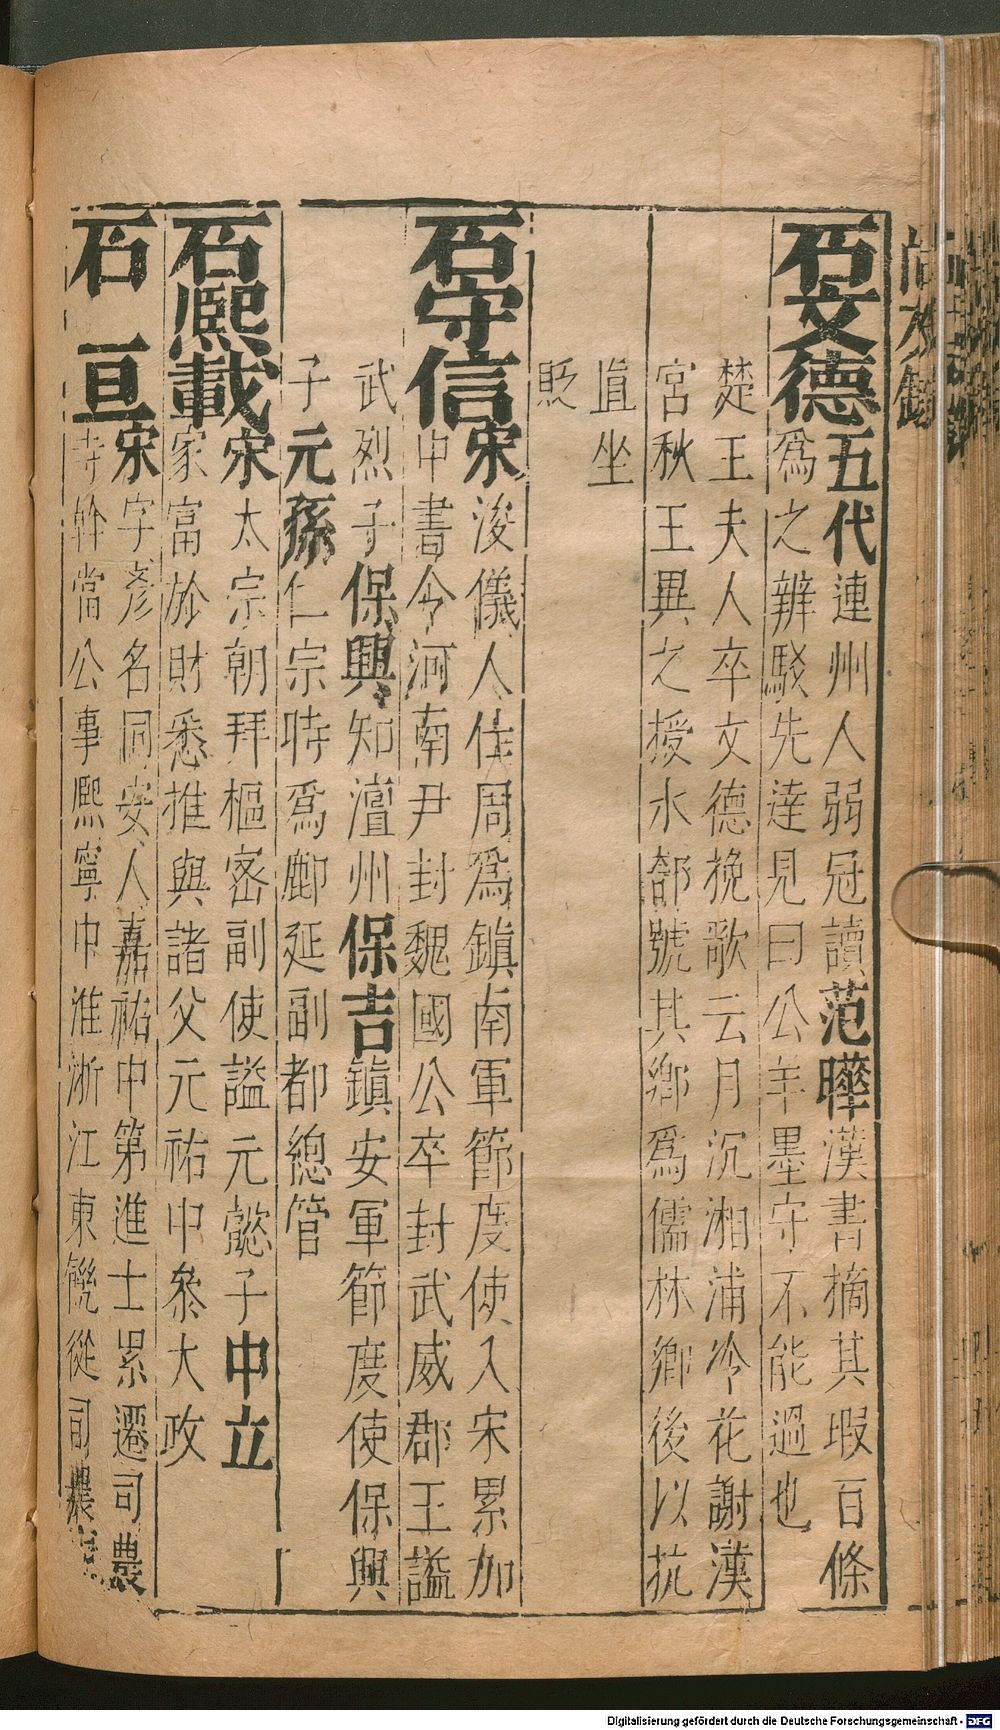 石文德五代連州人弱冠讀范曄漢書摘其瑕百條
爲之辨駁先達見曰公羊墨守不能過也
楚王夫人卒文德挽歌云月沉湘浦冷花謝漢
宮秋王異之授水部號其鄉爲儒林鄉後以抗
直坐
貶
石守信宋浚儀人仕周爲鎮南軍節度使入宋累加
中書令河南尹封魏國公卒封武威郡王謚
武烈子保興知澶州保吉鎮安軍節度使保興
子元孫仁宗時爲鄜延副都總管
石熙載宋太宗朝拜樞密副使謚元懿子中立
家富於財悉推與諸父元祐中叅大政
石亘宋字彥名同安人嘉祐中第進士累遷司農
寺幹當公事熙寧中淮浙江東饑從司農
Digitalisierung gefördert durch die Deutsche Forschungsgemeinschaft - DFG